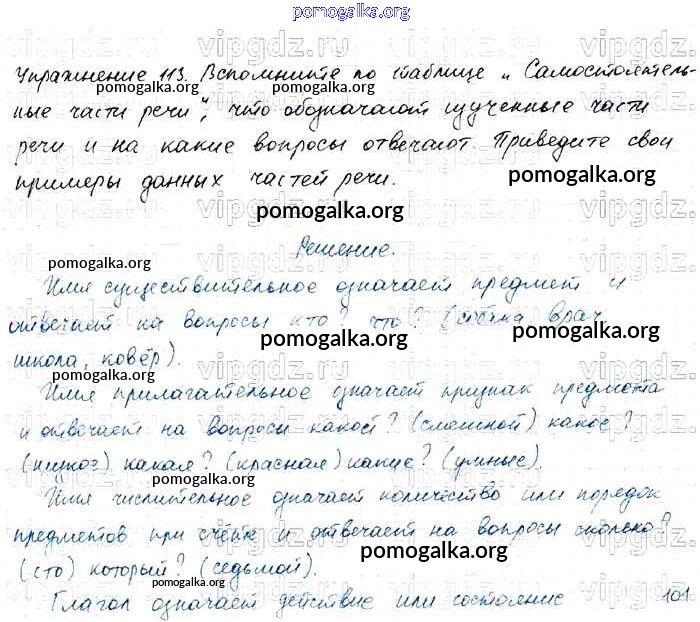 pomogalka.org
Упражнение 113. Вспомните по таблице „Самостоятель-
ные части речи", что обозначают изученные части
речи и на какие вопросы отвечают. Приведите свои
примеры данных частей речи.
pomogalka.org
pomogalka.org
Решение.
pomogalka.org
Имя существительное означает предмет и
отвечает на вопросы кто? что? ( врач
pomogalka.org
школа, ковёр).
pomogalka.org
Имя прилагательное означает признак предмета
и отвечает на вопросы какой? (смешной) какое?
(низкое) какая? (красная) какие? (умные).
pomogalka.org
Имя числительное означает количество или порядок
предметов при счёте и отвечает на вопросы сколько?
pomogalka.org
(сто) который? (седьмой).
pomogalka.org
Глагол означает действие или состояние
101